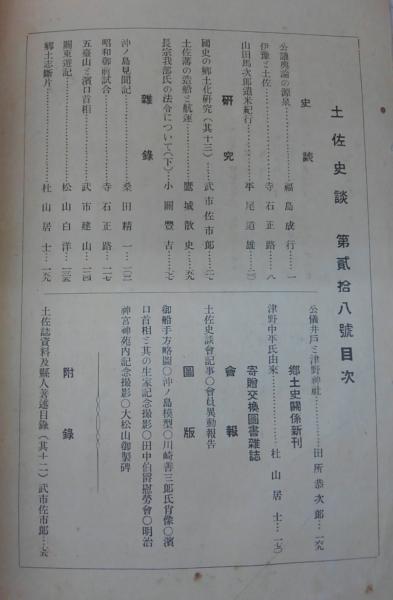 土佐史談 第貳拾八號目次
史談
公議輿論の源泉……福島成行…一
伊豫と土佐……寺石正路…八
山田馬次郎遣米紀行……平尾道雄…
研究
國史の鄕土化硏究(其十三)……武市佐市郎…
土佐藩の造船と航運……鷹城散史…
長宗我部氏の法令について(下)…小關豐吉…
雜錄
沖ノ島見聞記……桑田精一…
昭和御前試合……寺石正路…
五臺山と濱口首相……武市建山…
關東遊記……松山白洋…
鄕土志斷片……杜山居士…
公儀井戸と津野神社……田所恭次郎…
鄕土史關係新刊
津野中平氏由來……杜山居士…
寄贈交換圖書雜誌
會報
土佐史談會記事〇會員異動報告
圖版
御船手方略圖〇沖ノ島模型〇川崎善三郎氏肖像〇濱
口首相と其の生家記念撮影〇田中伯爵慰勞會〇明治
神宮神苑內記念撮影〇大松山御製碑
附錄
土佐誌資料及縣人著述目錄(其十二)武市佐市郎…